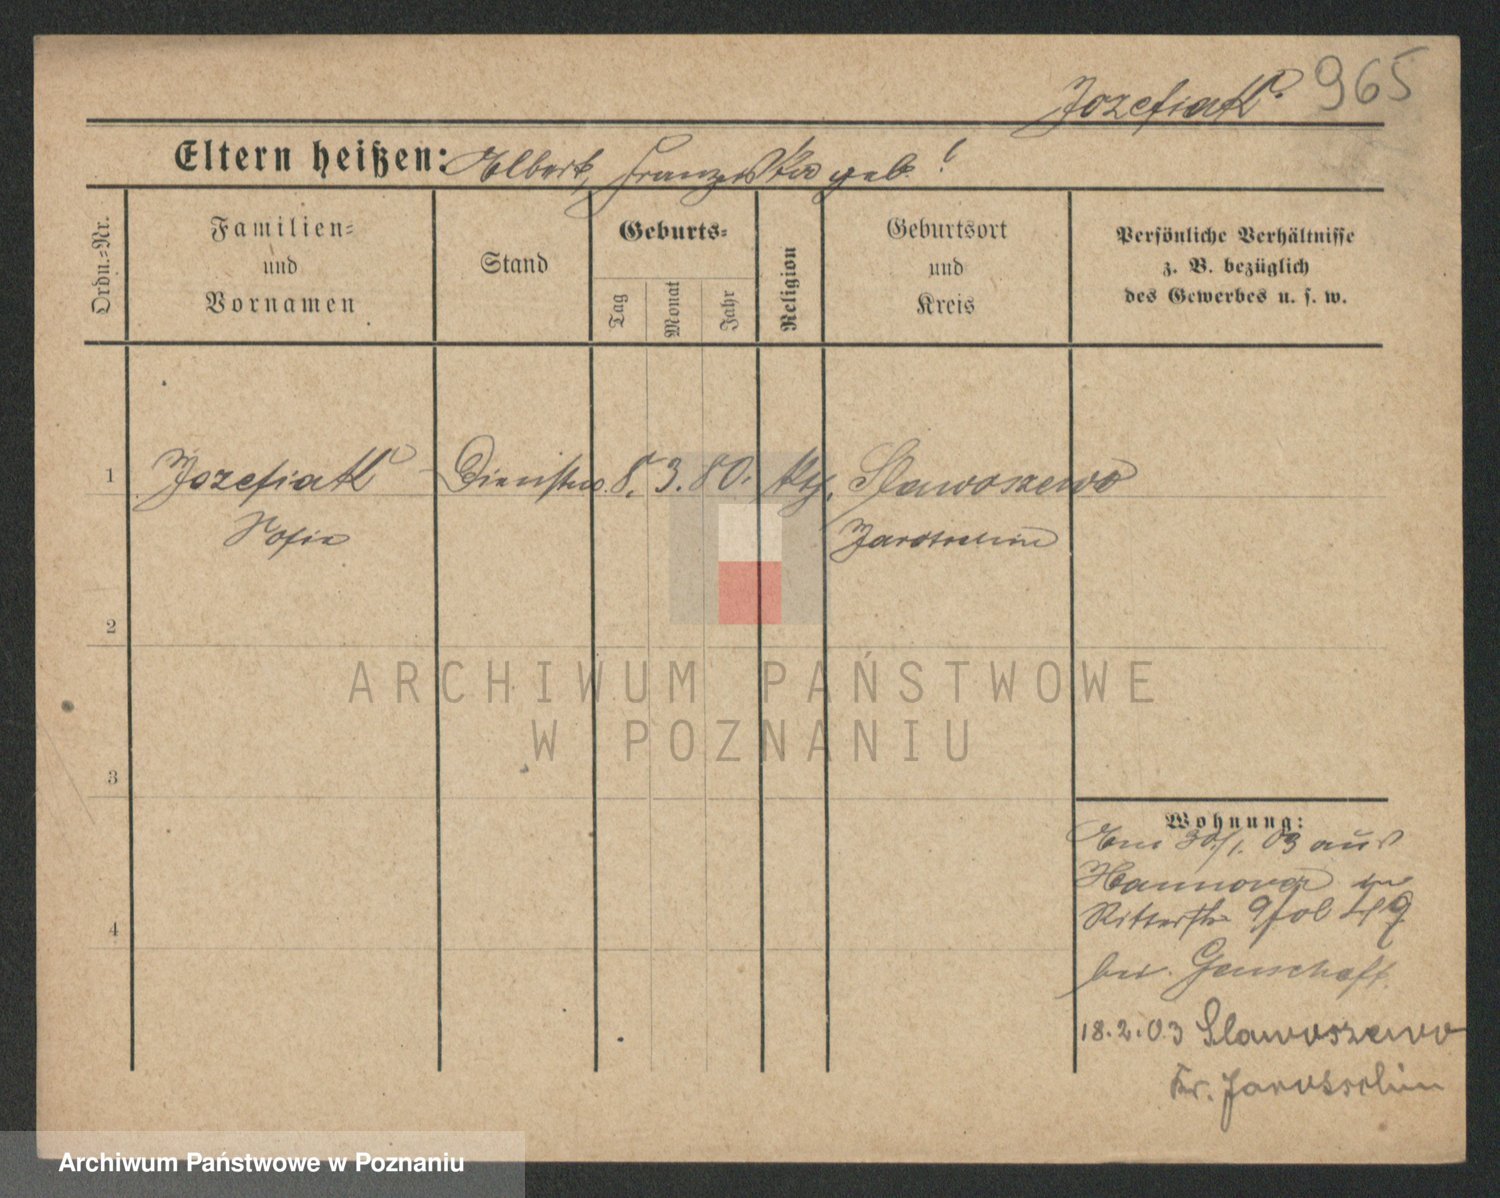 Jozefiak 965
Eltern heißen: Albert, Franziska geb. ?
Ordn.=Nr.
Familien=
und
Vornamen
Stand
Geburts=
Tag
Monat
Jahr
Religion
Geburtsort
und
Kreis
Persönliche Verhältnisse
z. B. bezüglich
des Gewerbes u. s. w.
1 Jozefiak Dienstm. 8. 3. 80. kth. Slawoszewo
Sofie Jarotschin
2
3
4
Wohnung:
Am 30/1. 03 aus
Hannover
Ritterstr. 9
bei
18.2.03 Slawoszewo
Kr. Jarotschin
ARCHIWUM PAŃSTWOWE
W POZNANIU
Archiwum Państwowe w Poznaniu